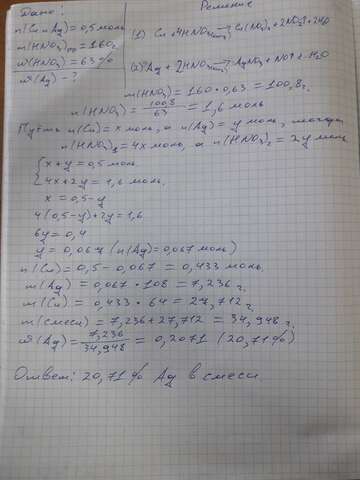 Дано:
Решение
n(Cu и Ag) = 0,5 моль
m(HNO₃)пр = 160г
w(HNO₃) = 63%
w(Ag) - ?
(1) Cu + 4HNO₃ → Cu(NO₃)₂ + 2NO₂↑ + 2H₂O
(2) Ag + 2HNO₃ → AgNO₃ + NO₂↑ + H₂O
m(HNO₃) = 160 · 0,63 = 100,8г.
n(HNO₃) = 100,8/63 = 1,6 моль
Пусть n(Cu) = x моль, а n(Ag) = y моль, тогда
n(HNO₃)₁ = 4x моль, а n(HNO₃)₂ = 2y моль
{ x+y = 0,5 моль
{ 4x+2y = 1,6 моль.
x = 0,5-y
4(0,5-y)+2y = 1,6
6y = 0,4
y = 0,067 (n(Ag) = 0,067 моль)
n(Cu) = 0,5 - 0,067 = 0,433 моль.
m(Ag) = 0,067 · 108 = 7,236 г.
m(Cu) = 0,433 · 64 = 27,712 г.
m(смеси) = 7,236 + 27,712 = 34,948 г.
w(Ag) = 7,236/34,948 = 0,2071 (20,71%)
Ответ: 20,71% Ag в смеси